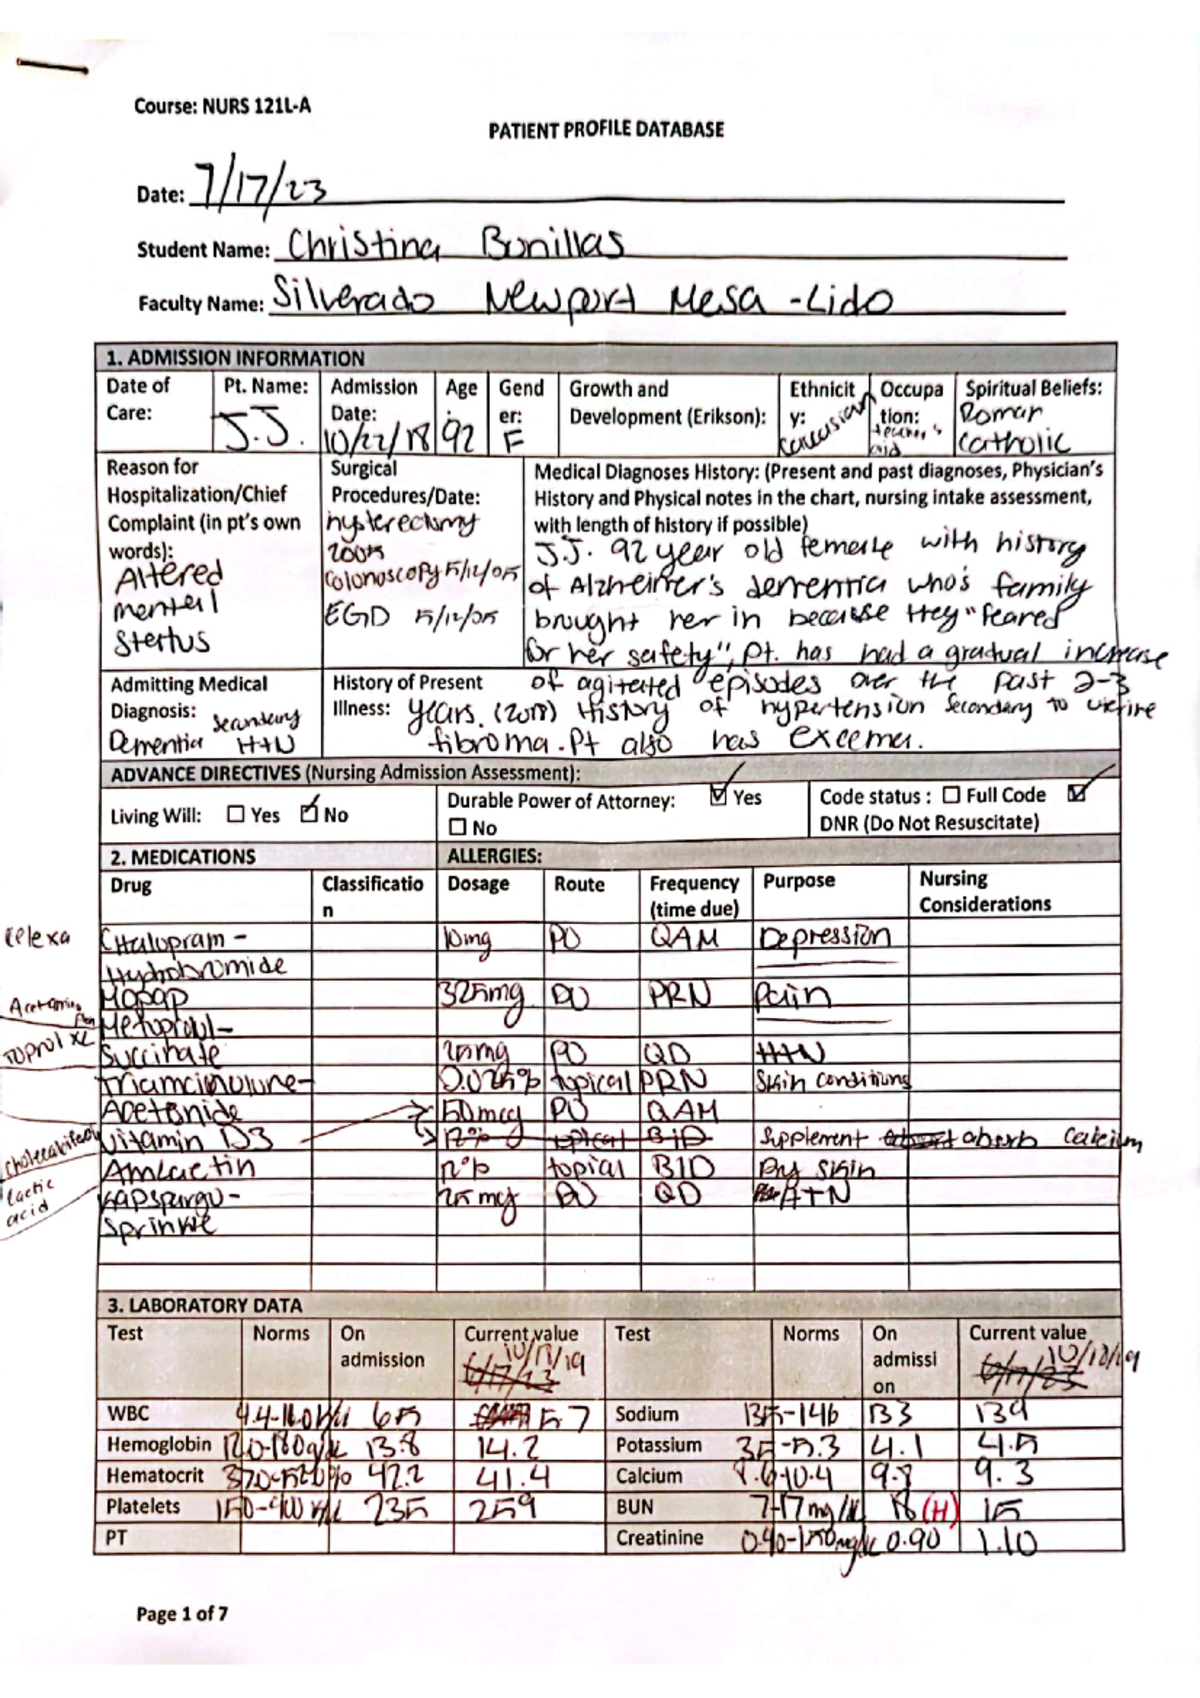 Course: NURS 121L-A
PATIENT PROFILE DATABASE
Date: 7/17/23
Student Name: Christina Bonillas
Faculty Name: Silverado Newport Mesa -Lido
1. ADMISSION INFORMATION
Date of Care:
Pt. Name: J.J.
Admission Date: 10/22/18
Age: 92
Gender: F
Growth and Development (Erikson):
Ethnicity: Caucasian
Occupation: teacher's aid
Spiritual Beliefs: Roman Catholic
Reason for
Hospitalization/Chief
Complaint (in pt's own
words):
Altered
mental
Status
Surgical
Procedures/Date:
hysterectomy
2005
Colonoscopy 5/12/05
EGD 5/12/05
Medical Diagnoses History: (Present and past diagnoses, Physician's
History and Physical notes in the chart, nursing intake assessment,
with length of history if possible)
J.J. 92 year old female with history
of Alzheimer's dementia who's family
brought her in because they "feared
for her safety", Pt. has had a gradual increase
Admitting Medical
Diagnosis: secondary
Dementia HTN
History of Present
Illness:
of agitated episodes over the past 2-3
years. (2018) History of hypertension secondary to uterine
fibroma. Pt also has excema.
ADVANCE DIRECTIVES (Nursing Admission Assessment):
Living Will: ☐ Yes ☑ No
Durable Power of Attorney: ☑ Yes
☐ No
Code status : ☐ Full Code ☑
DNR (Do Not Resuscitate)
2. MEDICATIONS ALLERGIES:
Drug Classification Dosage Route Frequency (time due) Purpose Nursing Considerations
Celexa Citalopram - 10mg PO QAM Depression
Hydrobromide
Acetaminophen Mapap 325mg PO PRN Pain
Toprol XL Metoprolol-
Succinate 25mg PO QD HTN
Triamcinolone- 0.025% topical PRN Skin conditions
Acetonide 50mcg PO QAM
cholecalciferol Vitamin D3 12% topical BID Supplement absorb calcium
lactic acid Amlactin 12% topical BID Dry skin
Kapspargo- 25mg PO QD HTN
Sprinkle
3. LABORATORY DATA
Test Norms On admission Current value 10/17/19 6/17/23
Test Norms On admission Current value 10/18/19 6/17/23
WBC 6.5 5.7 Sodium 135-146 133 139
Hemoglobin 13.8 14.2 Potassium 3.5-5.3 4.1 4.5
Hematocrit 37.0-52.0% 42.2 41.4 Calcium 8.6-10.4 9.8 9.3
Platelets 235 259 BUN 7-17 mg/dL 18 (H) 15
PT Creatinine 0.90 1.10
Page 1 of 7